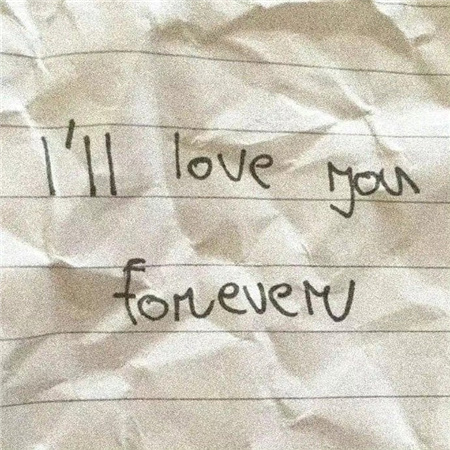 I'll love you
forever